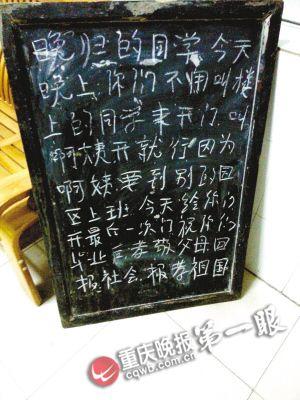 晚归的同学今天
晚上,你们不用叫楼
上的同学来开门,叫
啊姨开就行因为
啊姨要到别的园
区上班,今天给你们
开最后一次门祝你们
毕业后孝敬父母回
报社会.报孝祖国
重庆晚报 第一眼
www.cqwb.com.cn